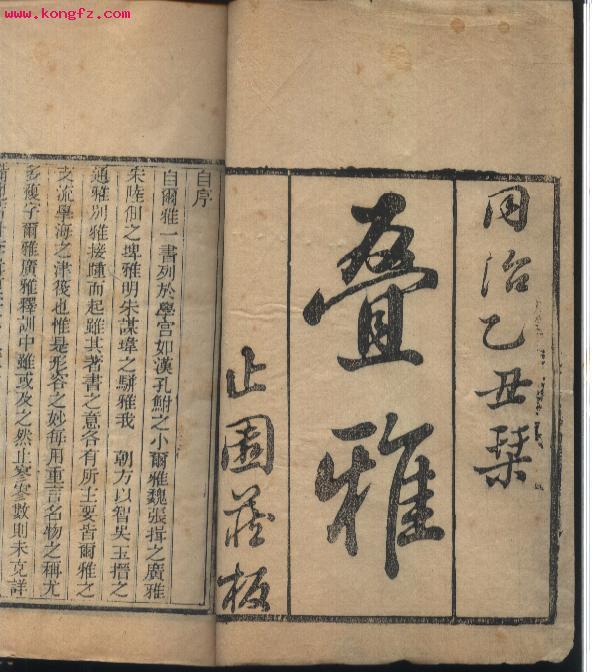 www.kongfz.com
同治乙丑栞
叠雅
止園藏板
自序
自爾雅一書列於學宫如漢孔鮒之小爾雅魏張揖之廣雅
宋陸佃之埤雅明朱謀㙔之駢雅我 朝方以智吳玉搢之
通雅别雅接踵而起雖其著書之意各有所主要皆爾雅之
支流學海之津筏也惟是形容之妙每用重言名物之稱尤
多複字爾雅廣雅釋訓中雖或及之然止寥寥數則未克詳